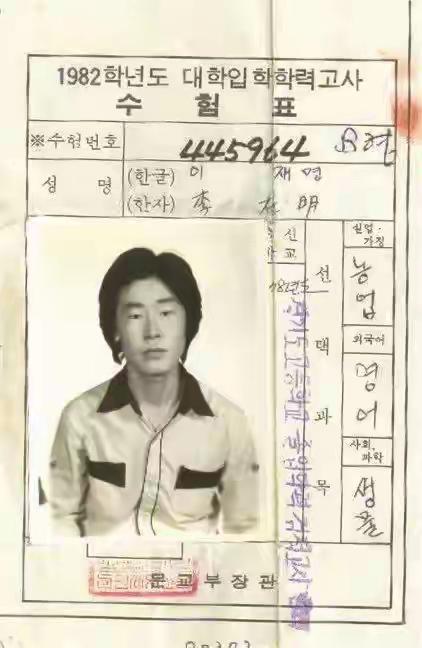 1982학년도 대학입학학력고사
수험표
※수험번호 445964
성명 (한글) 이재명
(한자) 李在明
출신
학교
선택과목
실업·
가정
농업
외국어
영어
사회,
과학
생물
경기도고등학교졸업학력검정고시
문교부장관